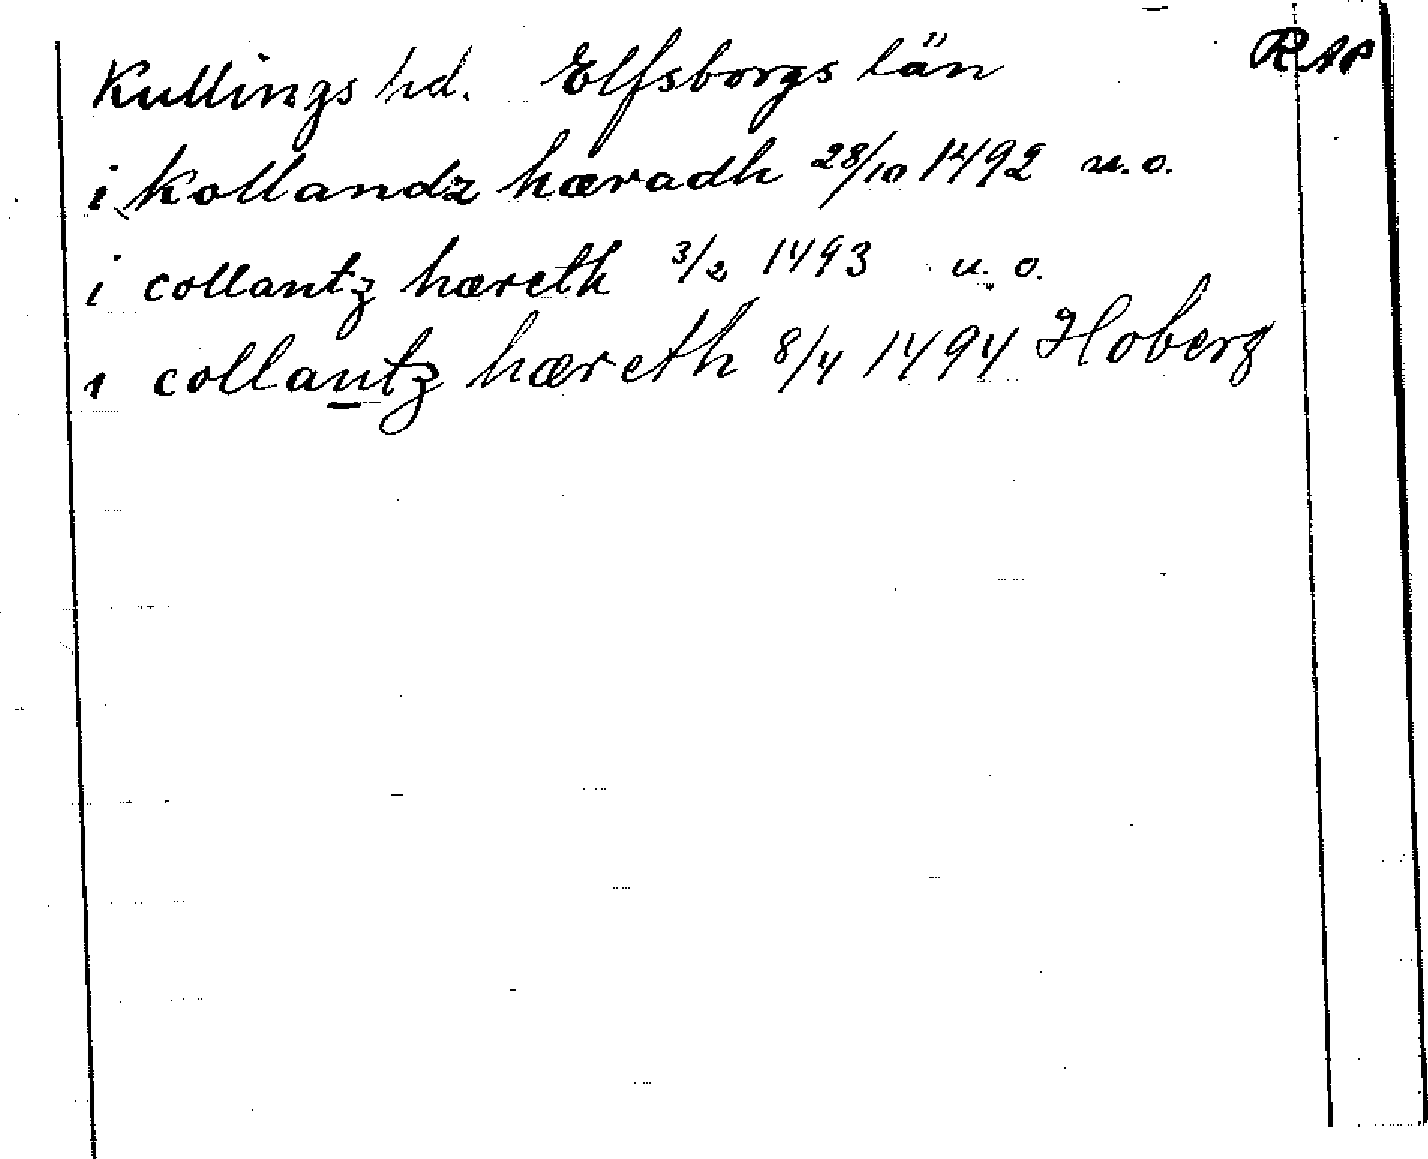 Kullings hd. Elfsborgs län RAP
i Kollandz hæradh 28/10 1492 u.o.
i collantz hæreth 3/2 1493 u.o.
i collantz hæreth 8/4 1494 Hoberg